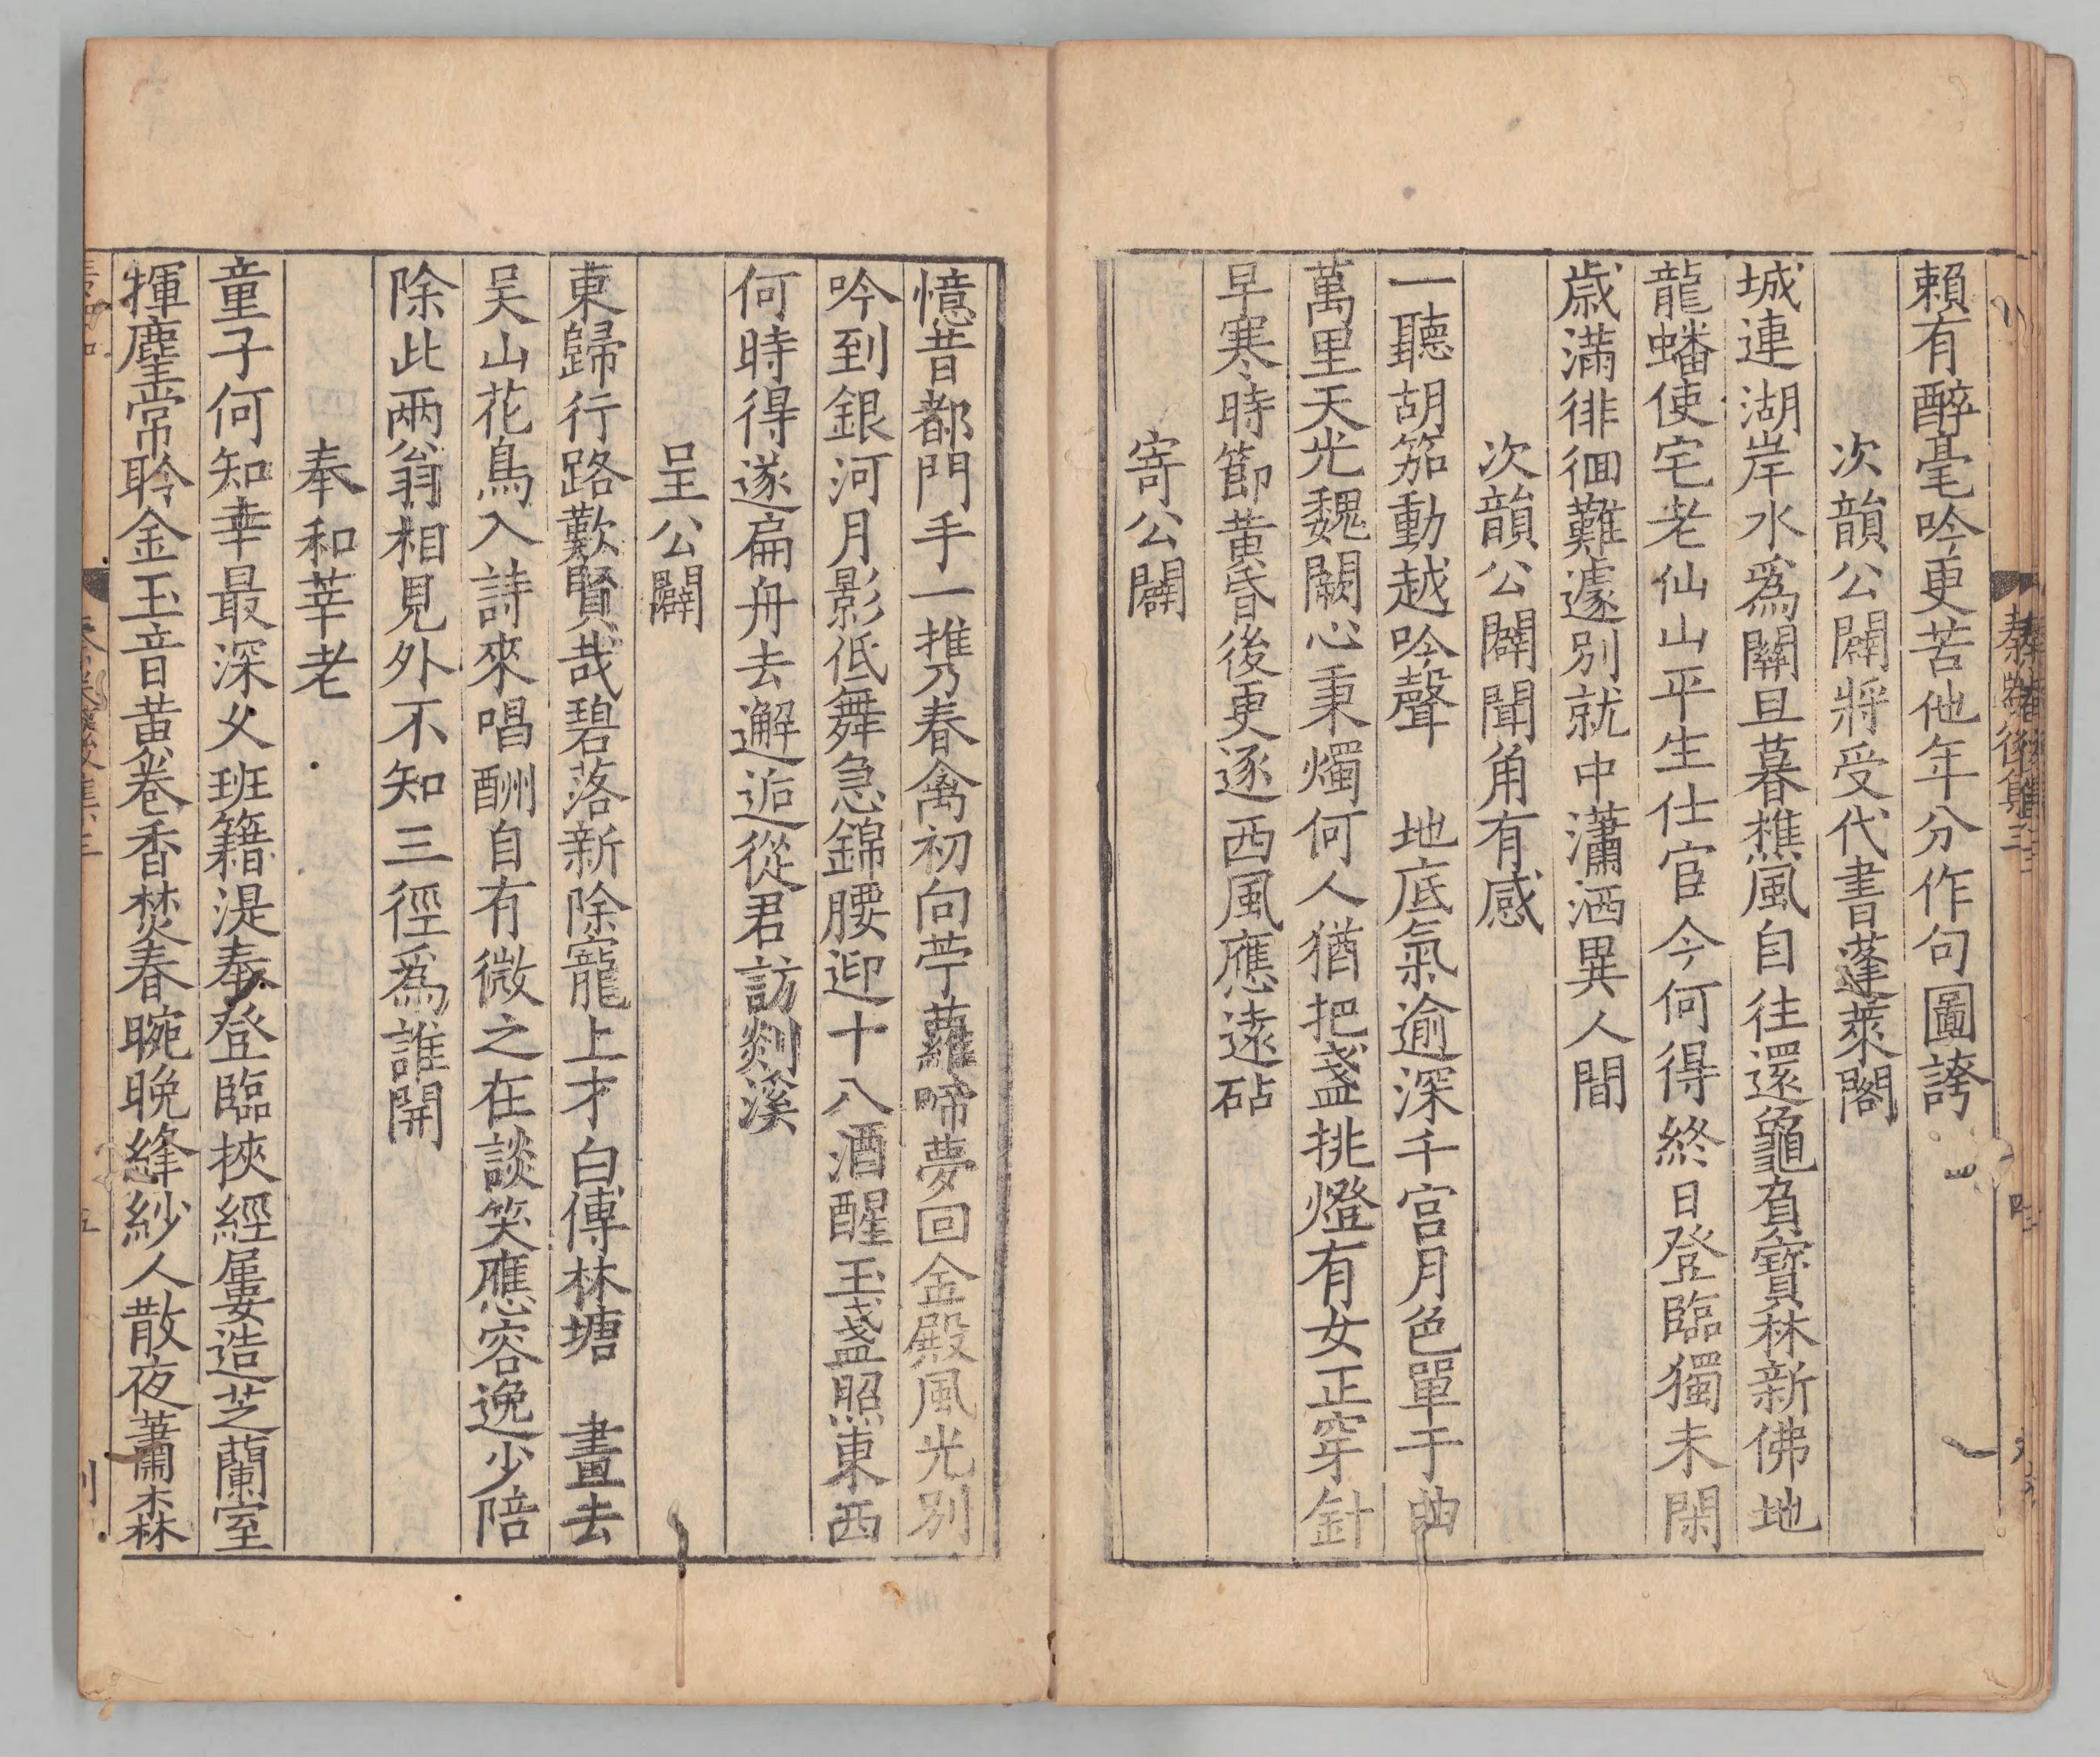 賴有醉毫吟更苦他年分作句圖誇
次韻公闢將受代書蓬萊閣
城連湖岸水爲關旦暮樵風自往還龜負寶林新佛地
龍蟠使宅老仙山平生仕宦今何得終日登臨獨未閑
歲滿徘徊難遽別就中瀟洒異人間
次韻公闢聞角有感
一聽胡笳動越吟聲 地底氣逾深千宮月色單于曲
萬里天光魏闕心秉燭何人猶把盞挑燈有女正穿針
早寒時節黃昏後更逐西風應遠砧
寄公闢
憶昔都門手一攜春禽初向苧蘿啼夢回金殿風光別
吟到銀河月影低舞急錦腰迎十八酒醒玉盞照東西
何時得遂扁舟去邂逅從君訪剡溪
呈公闢
東歸行路歎賢哉碧落新除寵上才白傅林塘 畫去
吳山花鳥入詩來唱酬自有微之在談笑應容逸少陪
除此兩翁相見外不知三徑爲誰開
奉和莘老
童子何知幸最深久班籍湜奉登臨挾經屢造芝蘭室
揮麈常聆金玉音黃卷香焚春晼晚絳紗人散夜蕭森